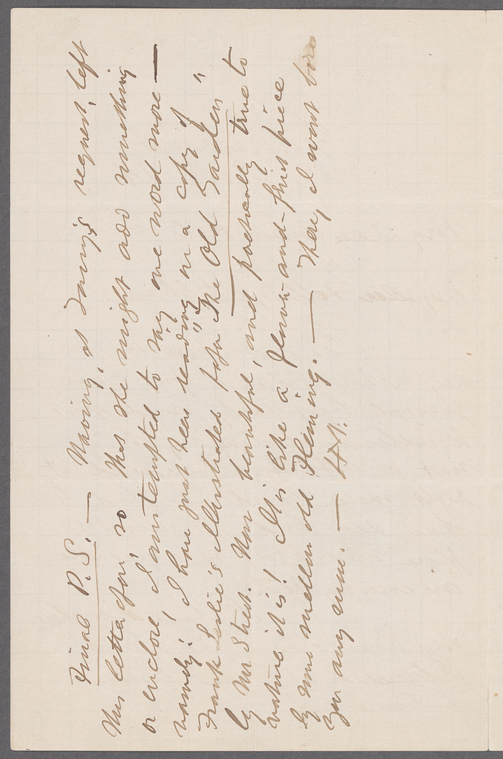 Final P.S. — Having, at Fanny's request, left
this letter open, so that she might add something
or enclose, I am tempted to say one word more —
namely: I have just been reading in a copy of
Frank Leslie's illustrated paper "The Old Garden"
by Mr Street. How beautiful, and poetically true to
nature it is! It is like a flower-and-fruit piece
by some mellow old Fleming. — There, I wont bore
you any more. — H.